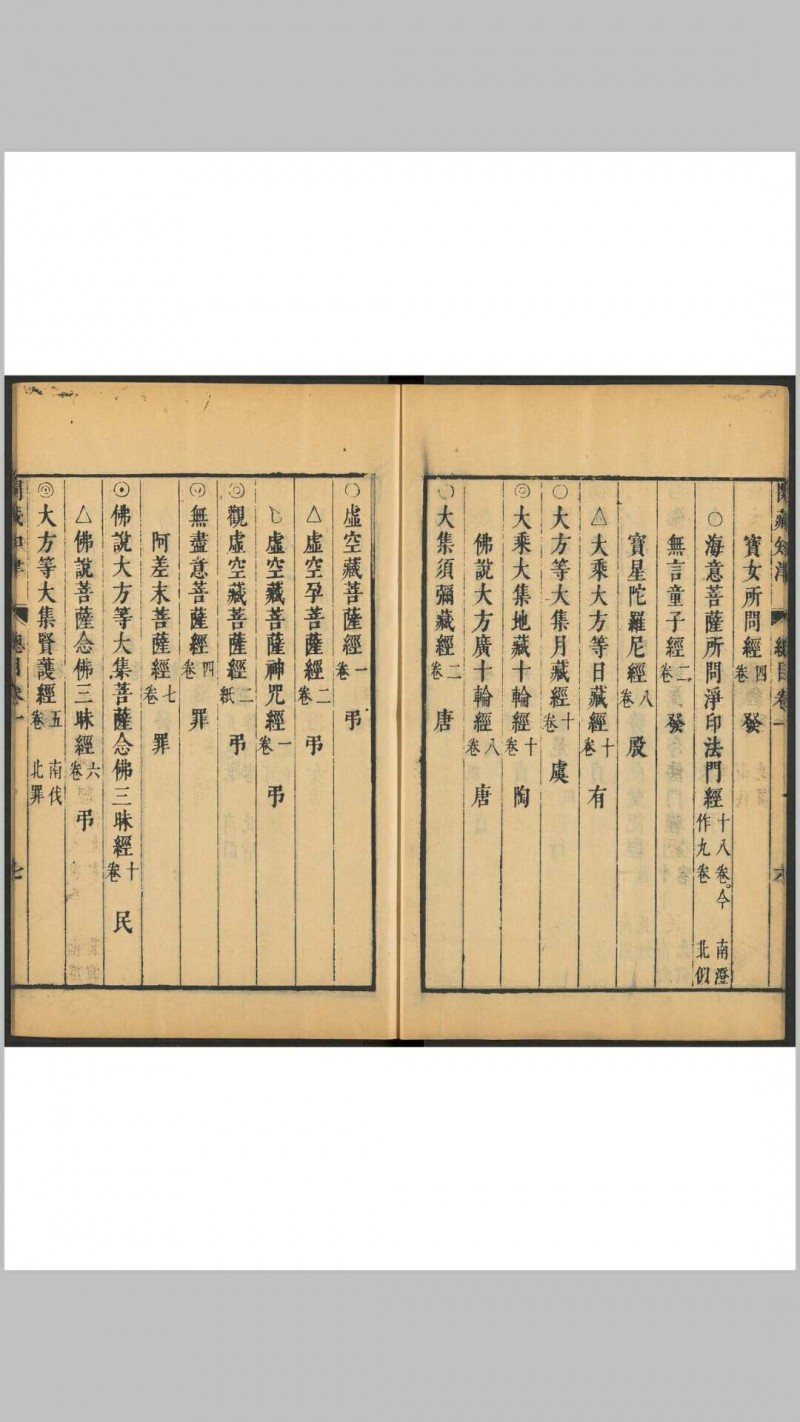 閱藏知津 總目卷一 六
寶女所問經四卷 發
○海意菩薩所問淨印法門經十八卷。今作九卷 南澄北似
無言童子經二卷 發
寶星陀羅尼經八卷 殷
△大乘大方等日藏經十卷 有
○大方等大集月藏經十卷 虞
◎大乘大集地藏十輪經十卷 陶
佛說大方廣十輪經八卷 唐
○大集須彌藏經二卷 唐
○虛空藏菩薩經一卷 弔
△虛空孕菩薩經二卷 弔
虛空藏菩薩神咒經一卷 弔
◎觀虛空藏菩薩經二紙 弔
◎無盡意菩薩經四卷 罪
阿差末菩薩經七卷 罪
⊙佛說大方等大集菩薩念佛三昧經十卷 民
△佛說菩薩念佛三昧經六卷 弔
◎大方等大集賢護經五卷 南伐北罪
閱藏知津 總目卷一 七